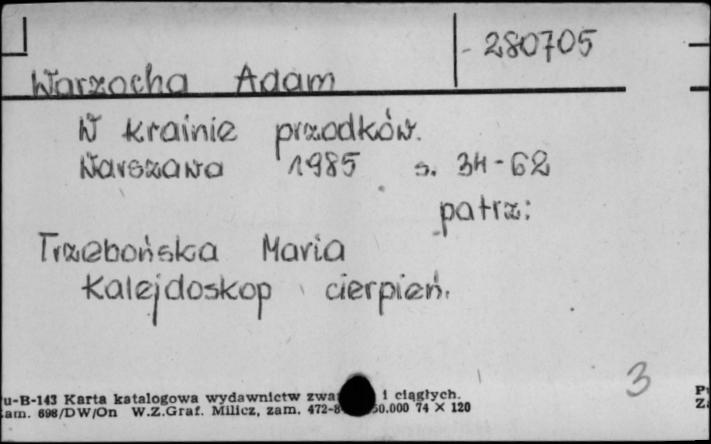 - 280705
Warzocha Adam
W krainie przodków.
Warszawa 1985 s. 34-62
patrz:
Trzebońska Maria
Kalejdoskop cierpień.
3
u-B-143 Karta katalogowa wydawnictw i ciągłych.
zam. 698/DW/On W.Z.Graf. Milicz, zam. 472-8 50.000 74 X 120